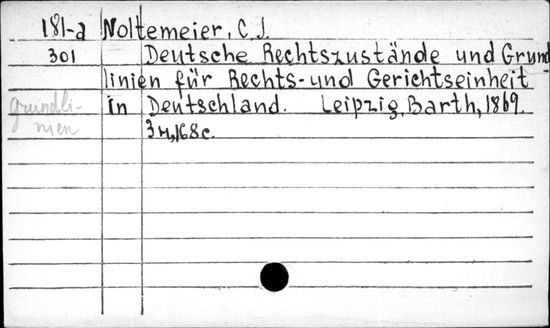 181-a Noltemeier, C. J.
301 Deutsche Rechtszustände und Grund
linien für Rechts- und Gerichtseinheit
in Deutschland. Leipzig, Barth, 1869.
grundli-
nien
168c.